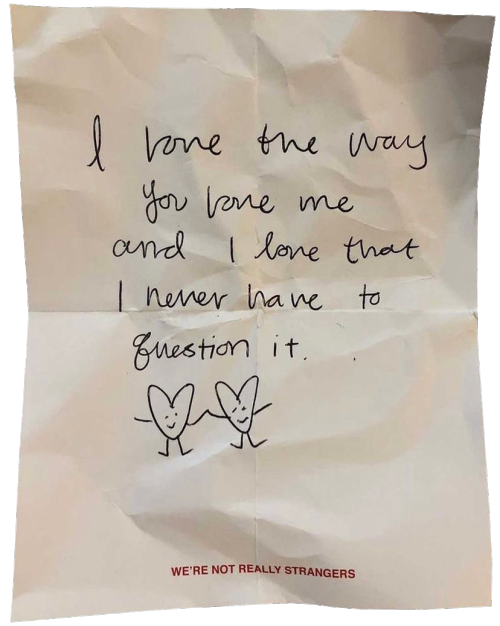 I love the way
you love me
and I love that
I never have to
question it.
WE'RE NOT REALLY STRANGERS